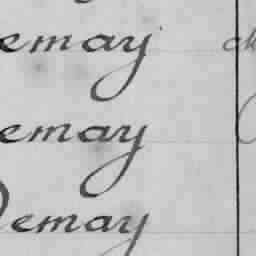 emay
emay
Demay